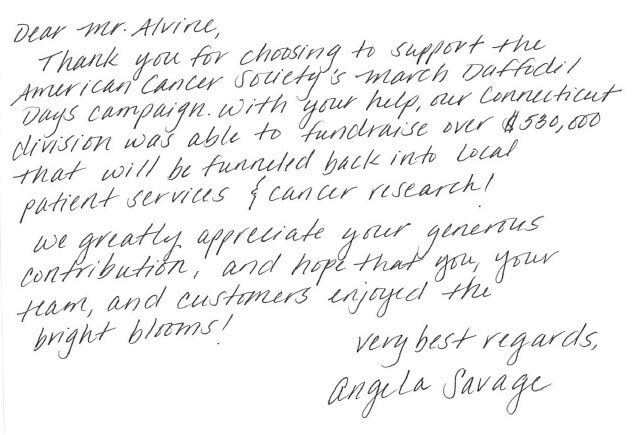 Dear Mr. Alvine,
Thank you for choosing to support the
American Cancer Society's March Daffodil
Days campaign. With your help, our Connecticut
division was able to fundraise over $530,000
that will be funneled back into local
patient services & cancer research!
We greatly appreciate your generous
contribution, and hope that you, your
team, and customers enjoyed the
bright blooms!
Very best regards,
Angela Savage